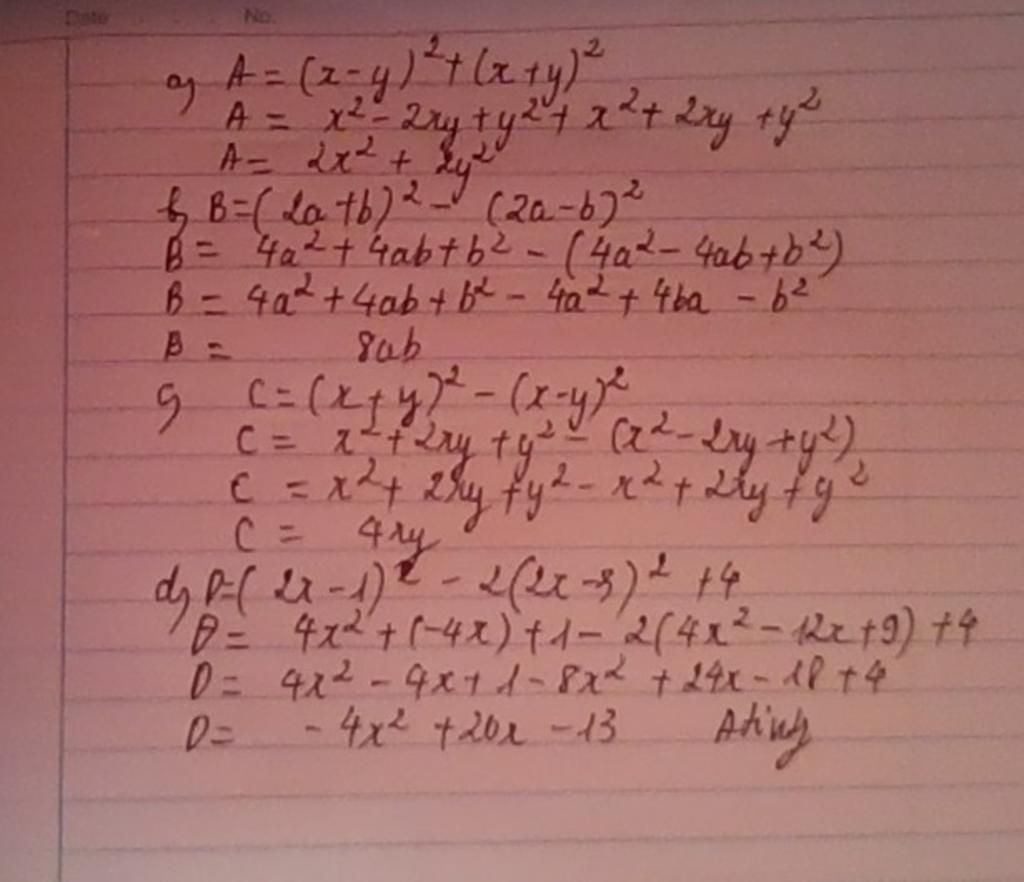 Date No.
a) A = (x-y)² + (x+y)²
A = x² - 2xy + y² + x² + 2xy + y²
A = 2x² + 2y²
b) B = (2a+b)² - (2a-b)²
B = 4a² + 4ab + b² - (4a² - 4ab + b²)
B = 4a² + 4ab + b² - 4a² + 4ba - b²
B = 8ab
c) C = (x+y)² - (x-y)²
C = x² + 2xy + y² - (x² - 2xy + y²)
C = x² + 2xy + y² - x² + 2xy + y²
C = 4xy
d) D = (2x-1)² - 2(2x-3)² + 4
D = 4x² + (-4x) + 1 - 2(4x² - 12x + 9) + 4
D = 4x² - 4x + 1 - 8x² + 24x - 18 + 4
D = - 4x² + 20x - 13